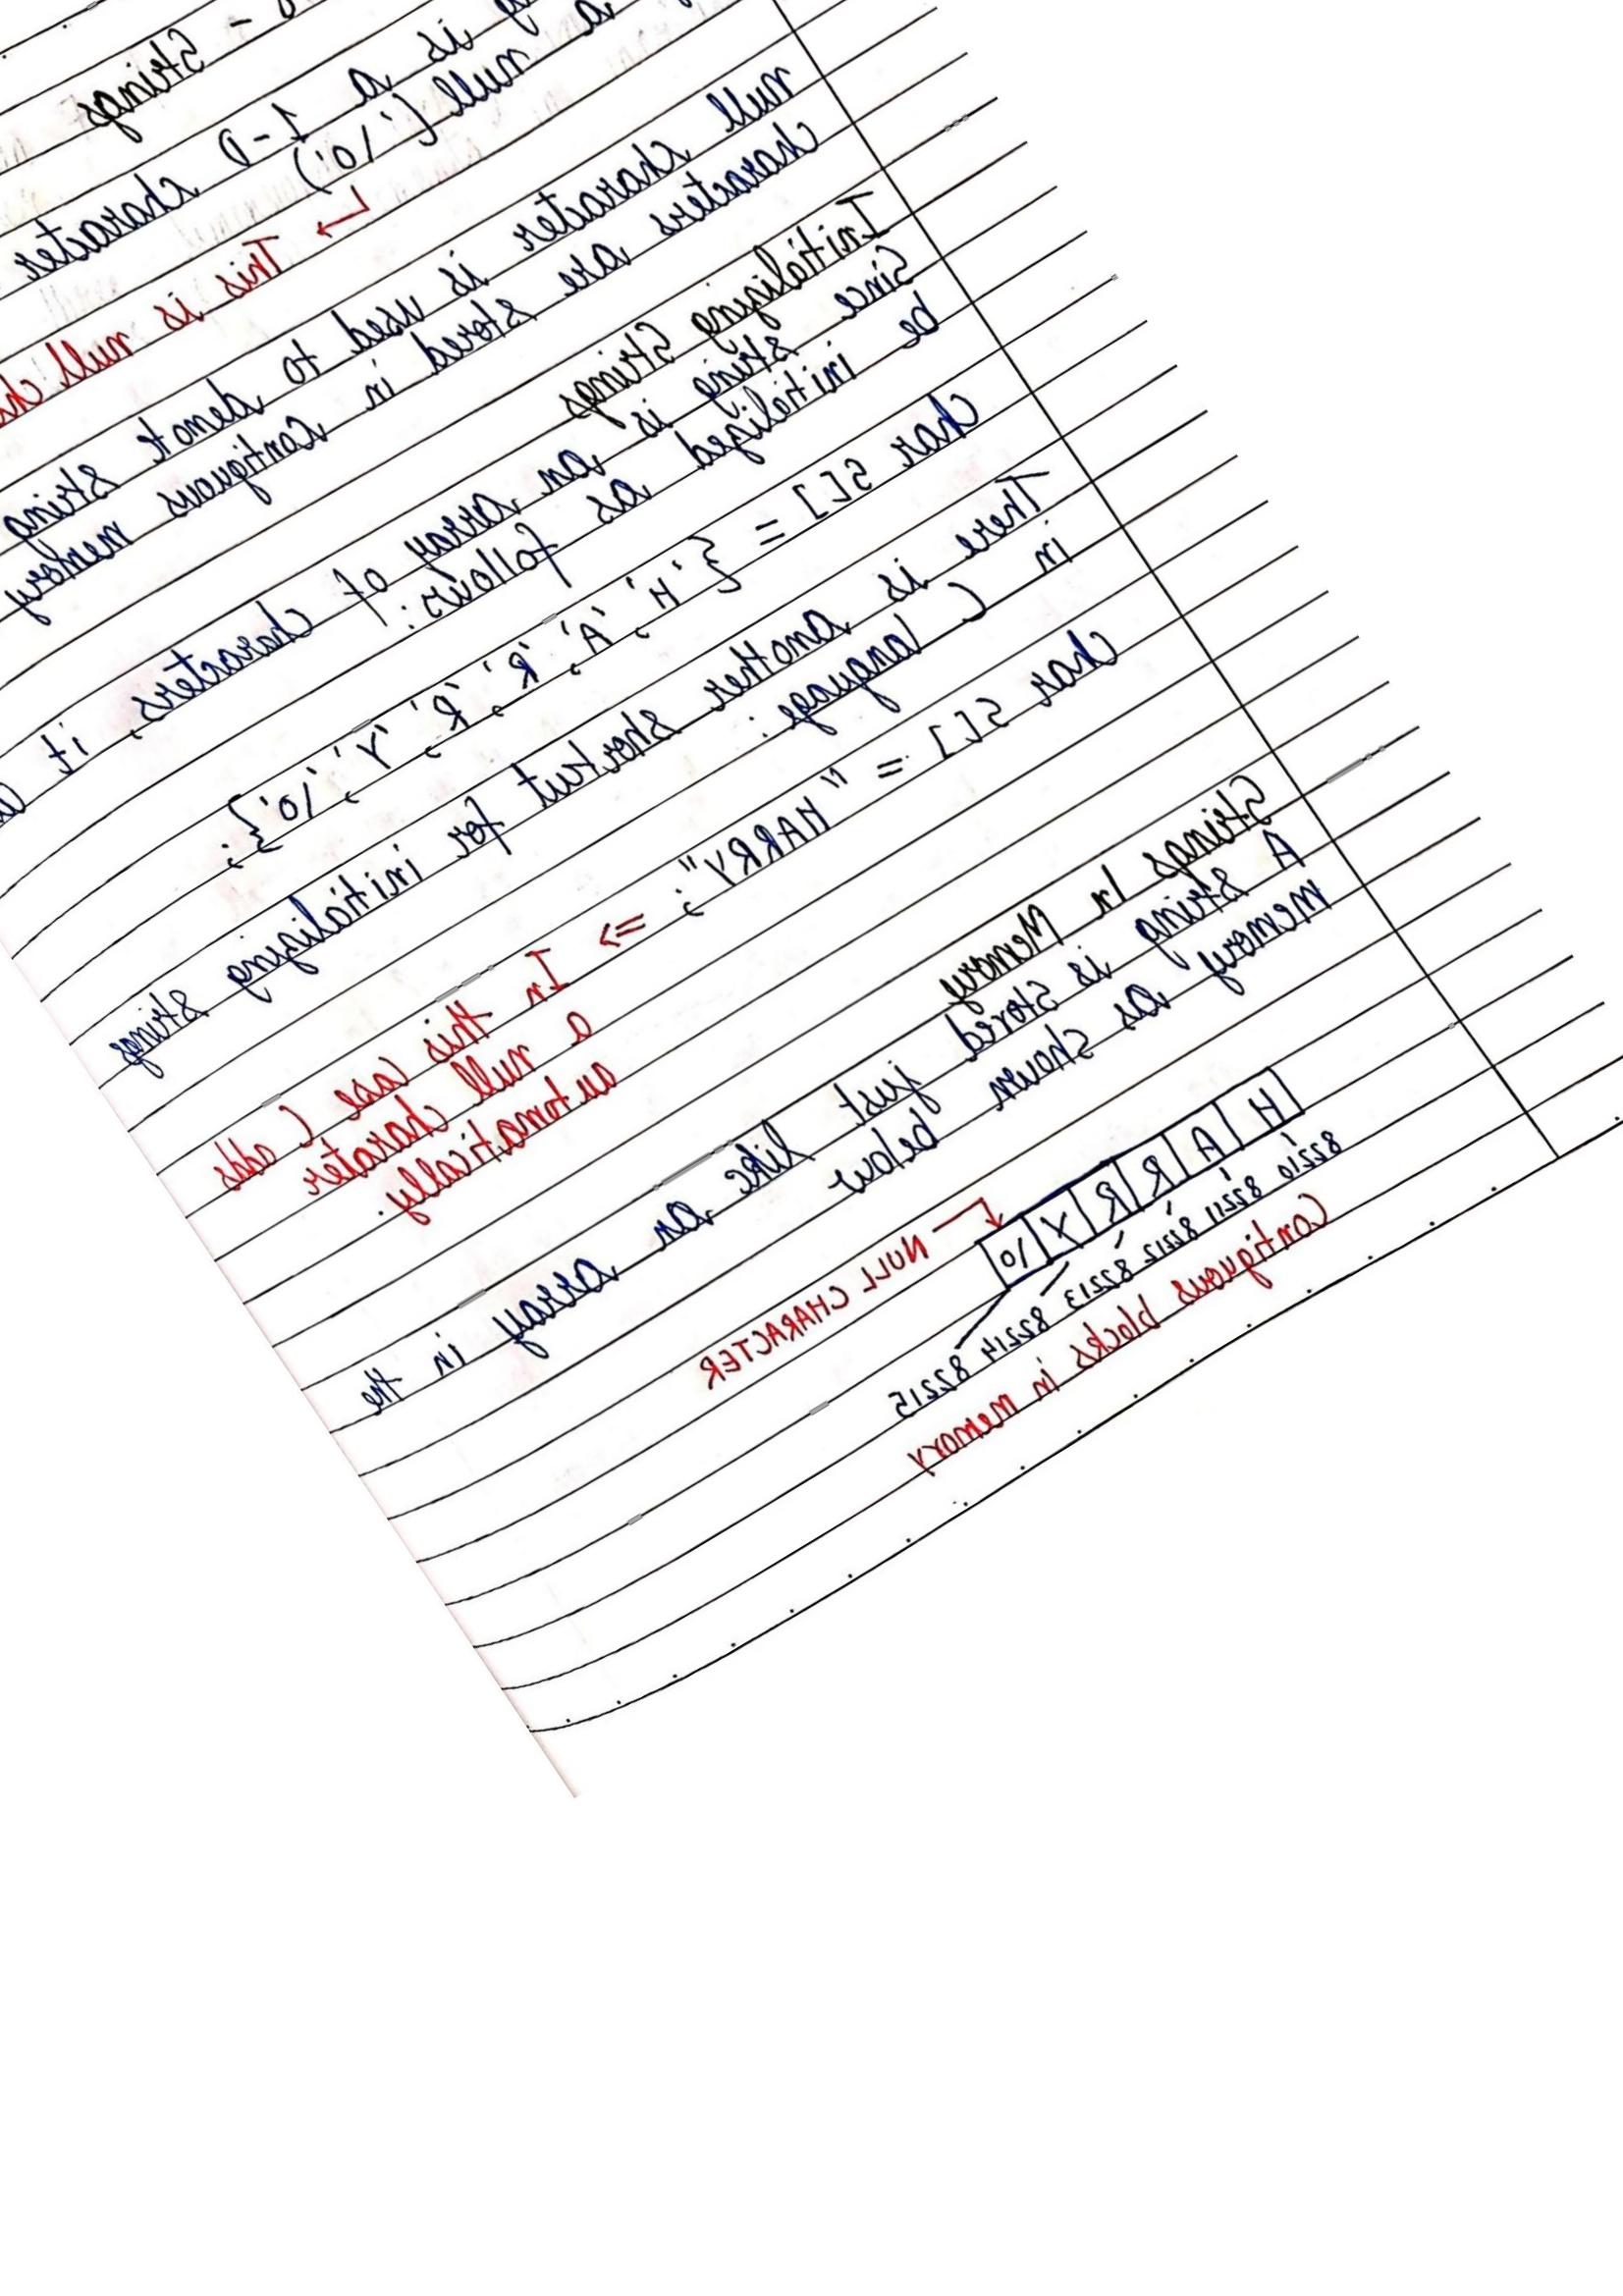 - Strings
is a 1-D character
a null ('\0')
↳ This is null
null character is used to denote string
characters are stored in contiguous memory
Initializing Strings
Since string is an array of characters, it
be initialized as follows:
char s[] = {'H', 'A', 'R', 'R', 'Y', '\0'};
There is another shortcut for initializing strings
in C language:
char s[] = "HARRY"; => In this case C adds
a null character
automatically.
Strings In Memory
A string is stored just like an array in the
memory as shown below
H A R R Y \0 NULL CHARACTER
82210 82211 82212 82213 82214 82215
Contiguous blocks in memory